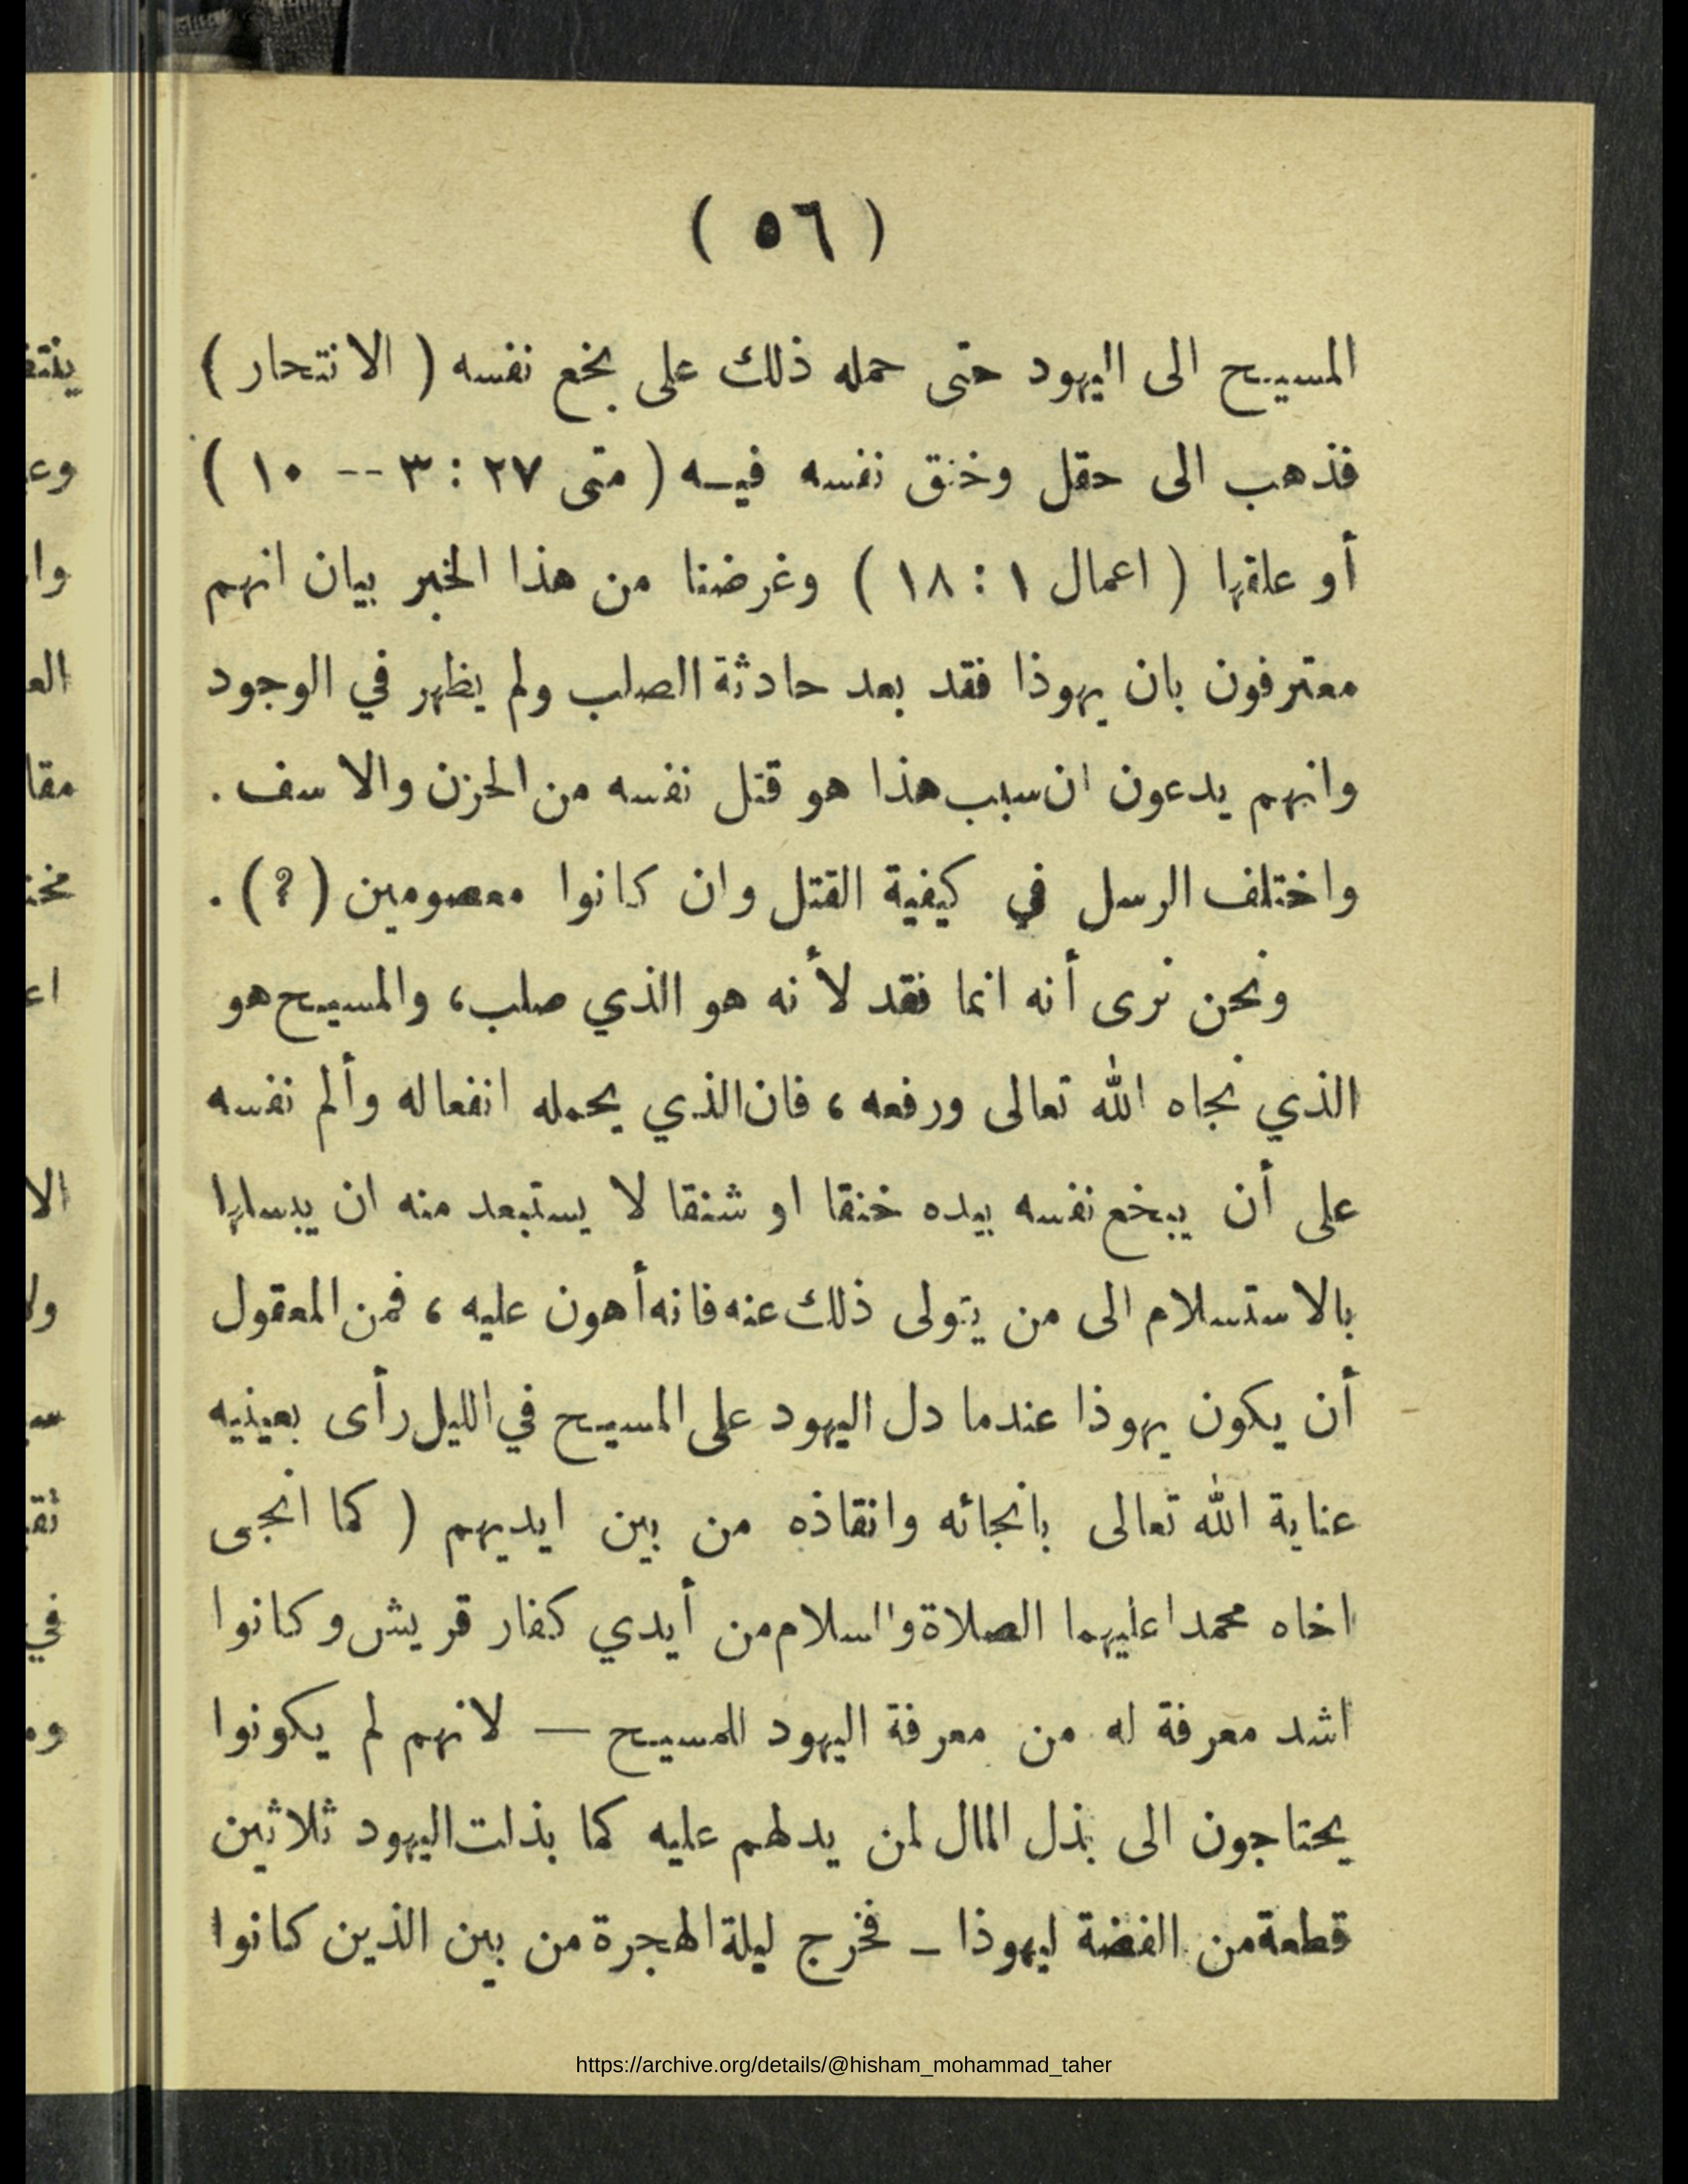 ( ٥٦ )
المسيح الى اليهود حتى حمله ذلك على بخع نفسه ( الانتحار )
فذهب الى حقل وخنق نفسه فيه ( متى ٢٧ : ٣ -- ١٠ )
أو علقها ( اعمال ١ : ١٨ ) وغرضنا من هذا الخبر بيان انهم
معترفون بان يهوذا فقد بعد حادثة الصلب ولم يظهر في الوجود
وانهم يدعون ان سبب هذا هو قتل نفسه من الحزن والاسف .
واختلف الرسل في كيفية القتل وان كانوا معصومين (؟) .
ونحن نرى أنه انما فقد لأنه هو الذي صلب، والمسيح هو
الذي نجاه الله تعالى ورفعه ، فان الذي يحمله انفعاله وألم نفسه
على أن يبخع نفسه بيده خنقا او شنقا لا يستبعد منه ان يبسلها
بالاستسلام الى من يتولى ذلك عنه فانه أهون عليه ، فمن المعقول
أن يكون يهوذا عندما دل اليهود على المسيح في الليل رأى بعينيه
عناية الله تعالى بانجائه وانقاذه من بين ايديهم ( كما انجى
اخاه محمدا عليهما الصلاة والسلام من أيدي كفار قريش وكانوا
اشد معرفة له من معرفة اليهود للمسيح — لانهم لم يكونوا
يحتاجون الى بذل المال لمن يدلهم عليه كما بذلت اليهود ثلاثين
قطعة من الفضة ليهوذا – فخرج ليلة الهجرة من بين الذين كانوا
https://archive.org/details/@hisham_mohammad_taher